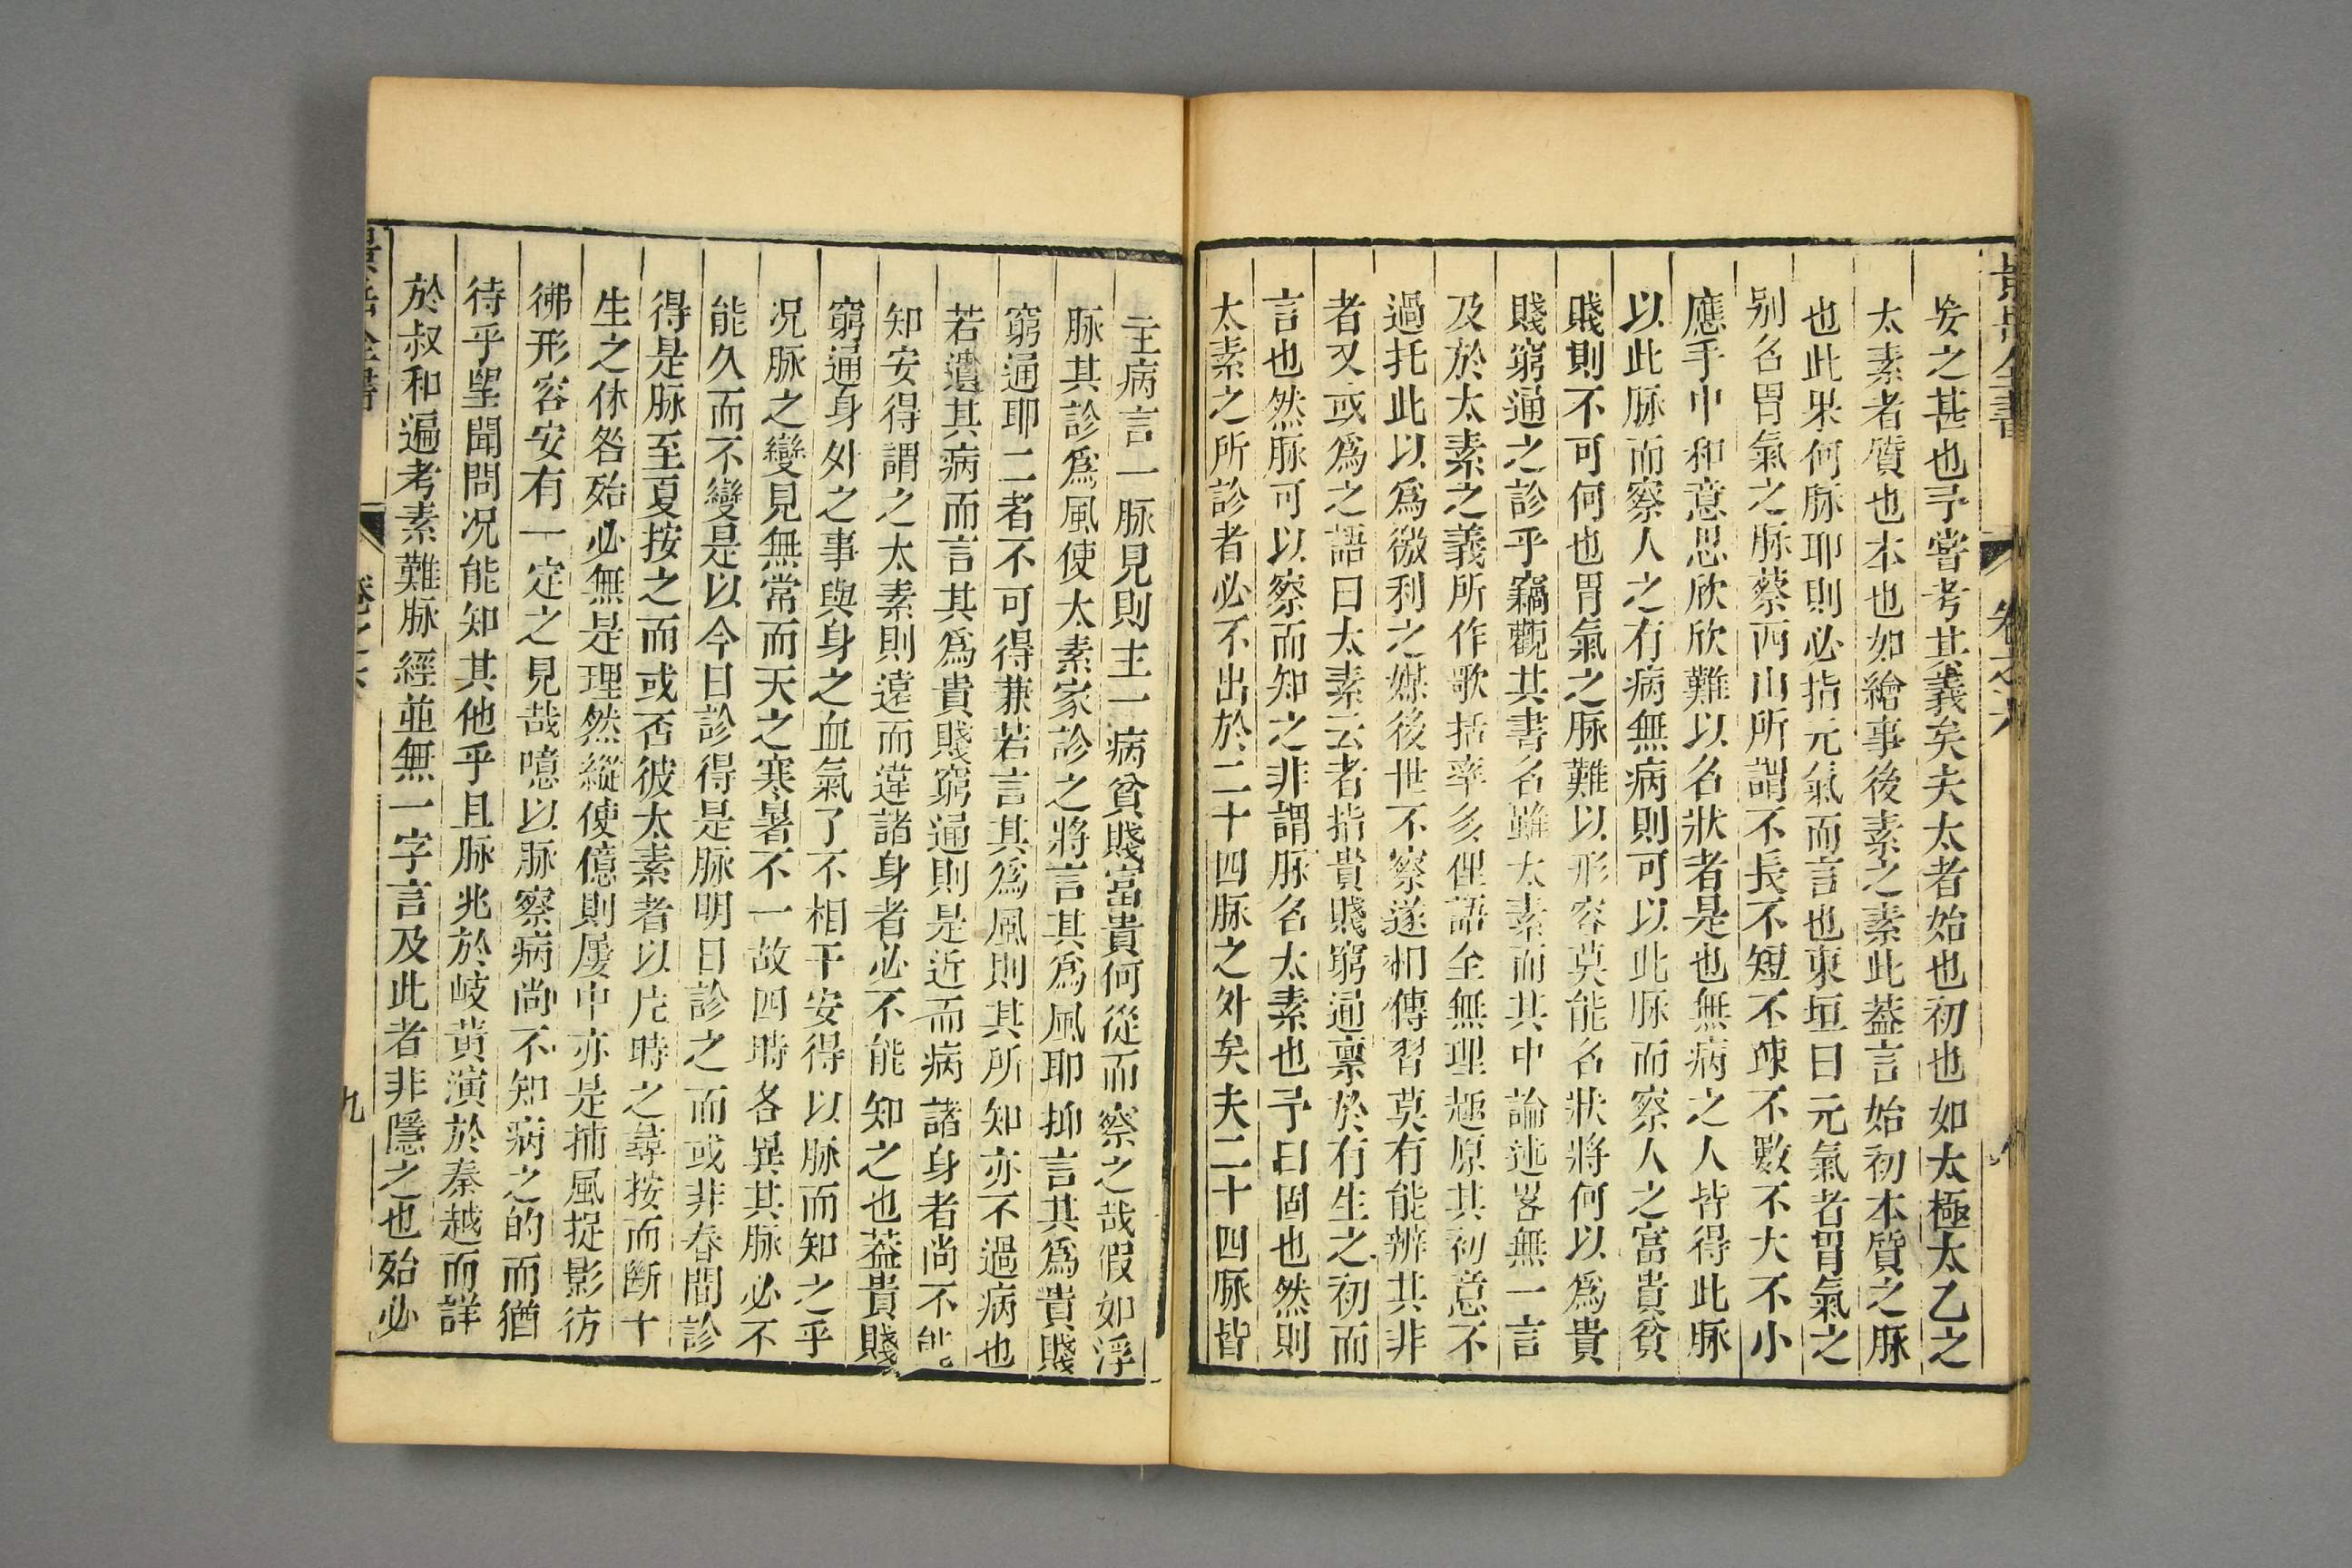 景岳全書 卷之六
妄之甚也予嘗考其義矣夫太者始也初也如太極太乙之
太素者質也本也如繪事後素之素此葢言始初本質之脉
也此果何脉耶則必指元氣而言也東垣曰元氣者胃氣之
别名胃氣之脉蔡西山所謂不長不短不疎不數不大不小
應手中和意思欣欣難以名狀者是也無病之人皆得此脉
以此脉而察人之有病無病則可以此脉而察人之富貴貧
賤則不可何也胃氣之脉難以形容莫能名狀將何以爲貴
賤窮通之診乎竊觀其書名雖太素而其中論述畧無一言
及於太素之義所作歌括率多俚語全無理趣原其初意不
過托此以爲徼利之媒後世不察遂相傳習莫有能辨其非
者又或爲之語曰太素云者指貴賤窮通禀於有生之初而
言也然脉可以察而知之非謂脉名太素也予曰固也然則
太素之所診者必不出於二十四脉之外矣夫二十四脉皆
主病言一脉見則主一病貧賤富貴何從而察之哉假如浮
脉其診爲風使太素家診之將言其爲風耶抑言其爲貴賤
窮通耶二者不可得兼若言其爲風則其所知亦不過病也
若遺其病而言其爲貴賤窮通則是近而病諸身者尚不能
知安得謂之太素則遠而違諸身者必不能知之也葢貴賤
窮通身外之事與身之血氣了不相干安得以脉而知之乎
况脉之變見無常而天之寒暑不一故四時各異其脉必不
能久而不變是以今日診得是脉明日診之而或非春間診
得是脉至夏按之而或否彼太素者以片時之尋按而斷十
生之休咎殆必無是理然縱使億則屢中亦是捕風捉影彷
彿形容安有一定之見哉噫以脉察病尚不知病之的而猶
待乎望聞問况能知其他乎且脉兆於岐黃演於秦越而詳
於叔和遍考素難脉經並無一字言及此者非隱之也殆必
景岳全書 卷之六 九